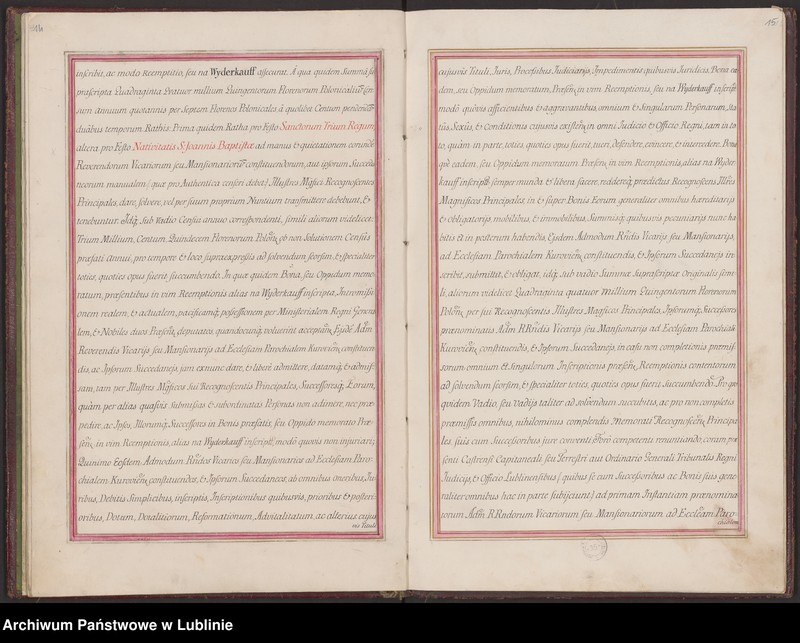 14
inscribit, ac modo Reemptitio, seu na Wyderkauff assecurat. A qua quidem Summâ sic
præscripta Quadraginta Quatuor millium Quingentorum Florenorum Polonicaliū, Cen-
sum annuum quotannis per Septem Florenos Polonicales à quolibet Centum pendendū,
duabus temporum Rathis: Prima quidem Ratha pro Festo Sanctorum Trium Regum,
altera pro Festo Nativitatis S. Joannis Baptistæ ad manus & quietationem eorundē
Reverendorum Vicariorum seu Mansionariorū constituendorum, aut ipsorum Succeda-
neorum manualem (quæ pro Authentica censeri debet) Illustres Mgfici Recognoscentes
Principales, dare, solvere, vel per suum proprium Nuntium transmittere debebunt, &
tenebuntur. Idq; Sub Vadio Censui annuo correspondenti, simili aliorum videlicet:
Trium Millium, Centum, Quindecem Florenorum Polōn; ob non Solutionem Censûs
præfati Annui, pro tempore, & loco supraexpressis ad solvendum seorsim, & specialiter
toties, quoties opus fuerit succumbendo. In qua quidem Bona, seu Oppidum memo-
ratum, præsentibus in vim Reemptionis alias na Wyderkauff inscripta, Intromissi-
onem realem, & actualem, pacificamq; possessionem per Ministerialem Regni Genera-
lem, & Nobiles duos Præsen̄, deputatos, quandocunq; voluerint acceptan̄, Eisdē Adm̄
Reverendis Vicarijs seu Mansionarijs ad Ecclesiam Parochialem Kuroviēn, constituen-
dis, ac Ipsorum Succedaneis, jam exnunc dare, & liberè admittere, datamq; & admis-
sam, tam per Illustres Mgficos Sui Recognoscentis Principales, Successoresq; Eorum,
quàm per alias quasvis Submissas & subordinatas Personas non adimere, nec præ-
pedire, ac Ipsos, Illorumq; Successores in Bonis præfatis, seu Oppido memorato Præ-
sen̄, in vim Reemptionis, alias na Wyderkauff inscriptīs, modô quovis non injuriari;
Quinimo Eosdem Admodum Rn̄dos Vicarios seu Mansionarios ad Ecclesiam Paro-
chialem Kuroviēn, constituendos, & Ipsorum Succedaneos, ab omnibus oneribus, Ju-
ribus, Debitis Simplicibus, inscriptis, Inscriptionibus quibusvis, prioribus & posteri-
oribus, Dotum, Dotalitiorum, Reformationum, Advitalitatum, ac alterius cujus
vis Tituli
15
cujusvis Tituli, Juris, Processibus Judiciarijs, Impedimentis quibusvis Juridicis, Bona ea-
dem, seu Oppidum memoratum, Præsen̄, in vim Reemptionis, seu na Wyderkauff inscript̄
modô quôvis afficientibus & aggravantibus, omnium & Singularum Personarum, Sta-
tûs, Sexûs, & Conditionis cujusvis existen̄, in omni Judicio & Officio Regni, tam in to-
to, quàm in parte, toties, quoties opus fuerit, tueri, defendere, evincere, & intercedere. Bona
quæ eadem, seu Oppidum memoratum Præsen̄, in vim Reemptionis, alias na Wyder-
kauff inscriptā semper munda & libera facere, reddereq; prædictus Recognoscens Illris
Magnificis Principales, in & super Bonis Eorum generaliter omnibus hæreditarijs
& obligatorijs, mobilibus, & immobilibus, Summisq; quibusvis pecuniarijs nunc ha-
bitis & in posterum habendis, Eisdem Admodum Rn̄dis Vicarijs seu Mansionarijs,
ad Ecclesiam Parochialem Kuroviēn, constituendis, & Ipsorum Succedaneis in-
scribit, submittit, & obligat, idq; sub vadio Summæ Supra scriptæ Originalis simi-
li, aliorum videlicet Quadraginta quatuor Millium Quingentorum Florenorum
Polōn; per sui Recognoscentis Illustres Magficos Principales, Ipsorumq; Successores
prænominatis Adm̄ RRn̄dis Vicarijs seu Mansionarijs ad Ecclesiam Parochialē
Kuroviēn, constituendis, & Ipsorum Succedaneis, in casu non completionis præmis-
sorum omnium & Singulorum Inscriptionis præsen̄, Reemptionis contentorum
ad solvendum seorsim, & specialiter toties, quoties opus fuerit Succumbendō. Pro quo
quidem Vadio, seu Vadijs taliter ad solvendum succubitis, ac pro non completis
præmissis omnibus, nihilominus complendis, Memorati Recognoscēn, Principa-
les, suis cum Successoribus jure conventi, foro competenti renuntiando, coram præ-
senti Castrensi Capitaneali seu Terrestri aut Ordinario Generali Tribunalis Regni
Judicijs, & Officio Lublinensibus (quibus se cum Successoribus ac Bonis suis gene-
raliter omnibus hac in parte subijciunt) ad primam Instantiam prænomina-
torum Adm̄ RRndorum Vicariorum seu Mansionariorum ad Eccleām Paro-
chialem
Archiwum Państwowe w Lublinie